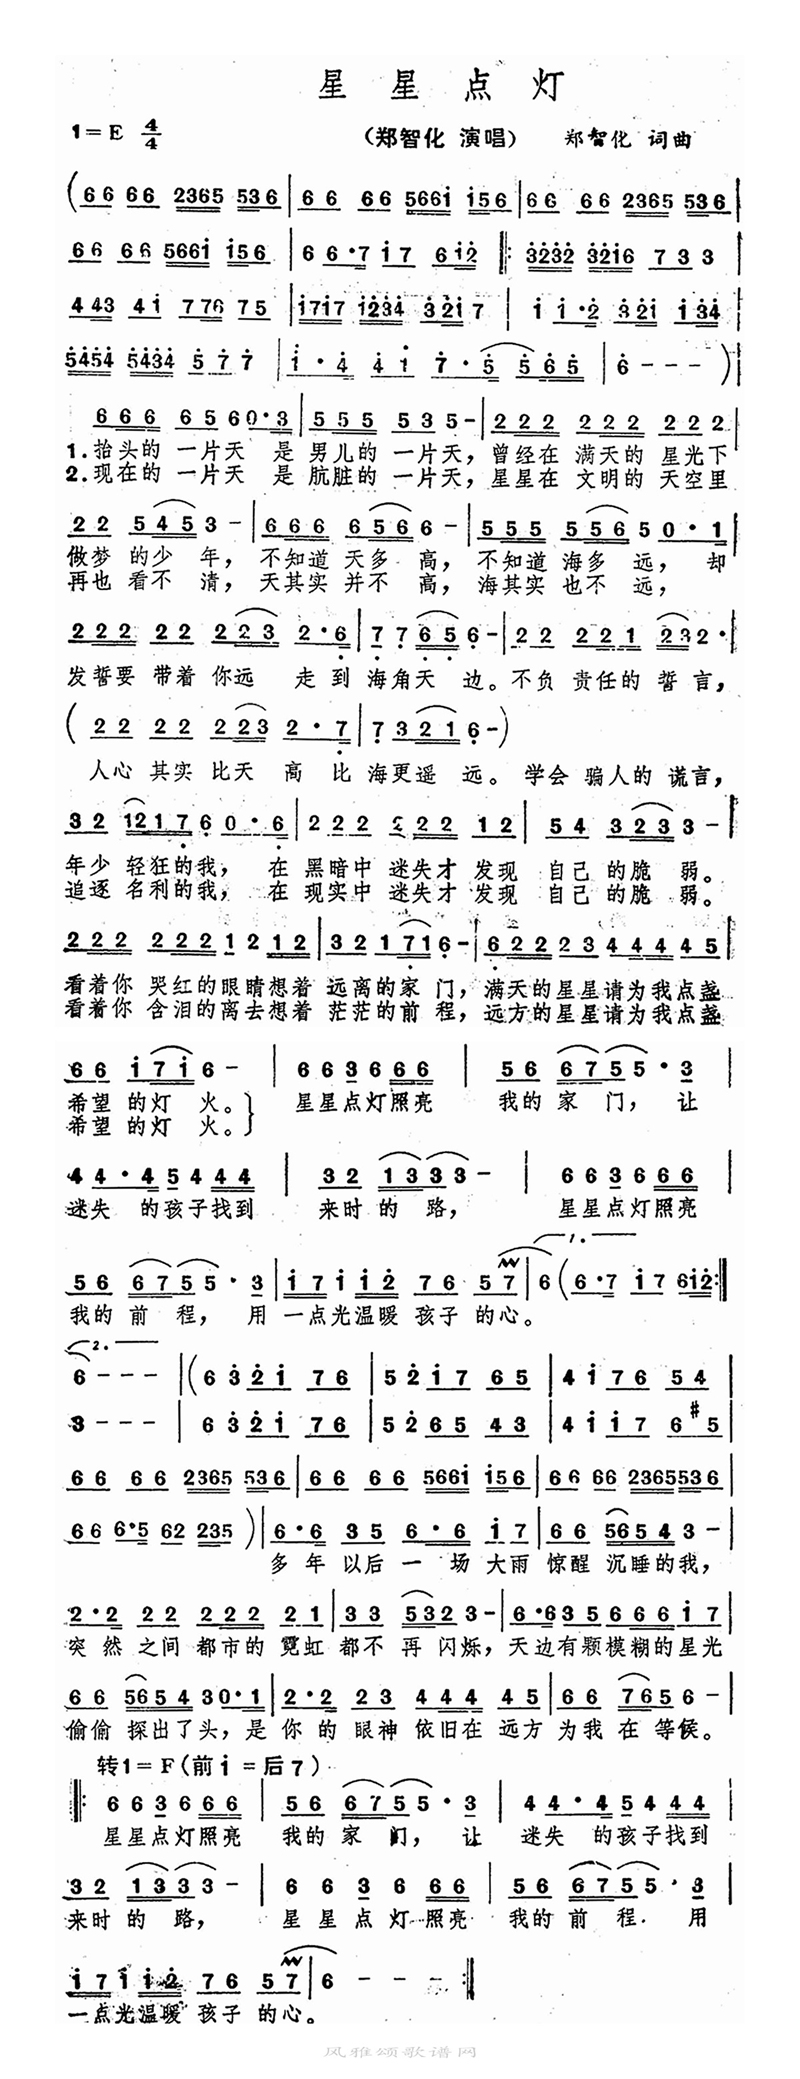 星星点灯
1=E 4/4 (郑智化 演唱) 郑智化 词曲
(66 66 2365 536 | 66 66 5661 156 | 66 66 2365 536 |
66 66 5661 156 | 66·7 17 612 ‖: 3232 3216 733
443 41 776 75 | 1717 1234 3217 | 1 1·2 321 134 |
5454 5434 577 | 1·4 41 7·5 565 | 6 - - - ) |
666 6560·3 | 555 535- | 222 222 222
1.抬头的 一片天 是 男儿的 一片天，曾经在 满天的 星光下
2.现在的 一片天 是 肮脏的 一片天，星星在 文明的 天空里
22 5453- | 666 6566- | 555 55650·1 |
做梦 的少 年， 不知道 天多 高， 不知道 海多 远， 却
再也 看不 清， 天其实 并不 高， 海其实 也不 远，
222 22 223 2·6 | 77656- | 22 221 232· |
发誓要 带着 你远 走 到 海角天 边。不负 责任的 誓言，
( 22 22 223 2·7 | 73216-)
人心 其实 比天 高 比 海更遥 远。 学会 骗人的 谎言，
32 121760·6 | 222 222 12 | 54 3233- |
年少 轻狂的我， 在 黑暗中 迷失才 发现 自己 的脆 弱。
追逐 名利的我， 在 现实中 迷失才 发现 自己 的脆 弱。
222 2221212 | 321716- | 6222234 44445
看着你 哭红的眼睛想着 远离的家 门，满天的星星请为我点盏
看着你 含泪的离去想着 茫茫的前 程，远方的星星请为我点盏
66 1716- | 663666 | 56 6755·3 |
希望 的灯 火。} 星星点灯照亮 我的 家 门， 让
希望 的灯 火。
44·45444 | 32 1333- | 663666 |
迷失 的孩子找到 来时 的 路， 星星点灯照亮
1.
56 6755·3 | 17112 76 57 | 6 (6·7 17 612 :‖
我的 前 程， 用 一点光温暖 孩子 的心。
2.
6 - - - | (6321 76 | 5217 65 | 4176 54 |
3 - - - 6321 76 | 5265 43 | 4117 6#5 |
66 66 2365 536 | 66 66 5661 156 | 66 66 2365536 |
66 6·5 62 235) | 6·6 35 6·6 17 | 66 56543- |
多年 以后 一 场 大雨 惊醒 沉睡的我，
2·2 22 222 21 | 33 5323- | 6·635 66617
突然 之间 都市的 霓虹 都不 再 闪烁，天边有颗模糊的星光
66 5654 30·1 | 2·2 23 444 45 | 66 7656- |
偷偷 探出了头，是 你的 眼神 依旧在 远方 为我 在 等候。
转1=F(前i=后7)
‖: 663666 | 56 6755·3 | 44·45444 |
星星点灯照亮 我的 家 门， 让 迷失 的孩子找到
32 1333- | 663666 | 56 6755·3 |
来时 的 路， 星星点灯照亮 我的 前 程. 用
17112 76 57 | 6 - - - :‖
一点光温暖 孩子 的心。
风雅颂歌谱网